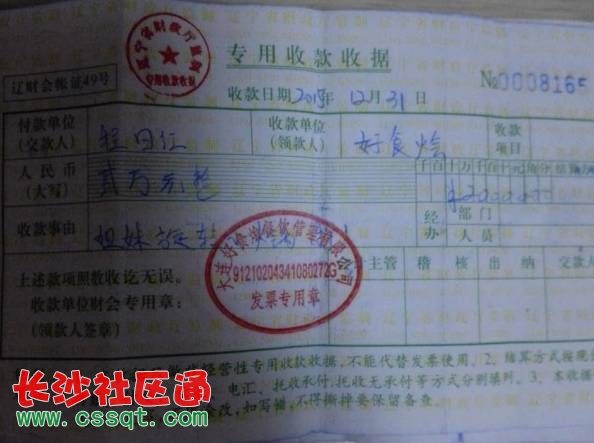 辽宁省财政厅监制
专用收款收据
专用收款收据
辽财会帐证49号
收款日期2015年12月31日
№000816
付款单位
(交款人)
收款单位
(领款人)
好食烩
收款
项目
人民币
(大写)
贰万元整
千百十万千百十元角分
¥2000000
收款事由
姐妹
经办
部门
人员
上述款项照数收讫无误。
收款单位财会专用章:
(领款人签章)
主管
稽核
出纳
交款人
91210204341080272G
发票专用章
经营性专用收款收据,不能代替发票使用。2、结算方式按现金
电汇、托收承付,托收无承付等方式分别填时。3、本收据
改,如写错,不得撕掉要保留备查。
长沙社区通
www.cssqt.com